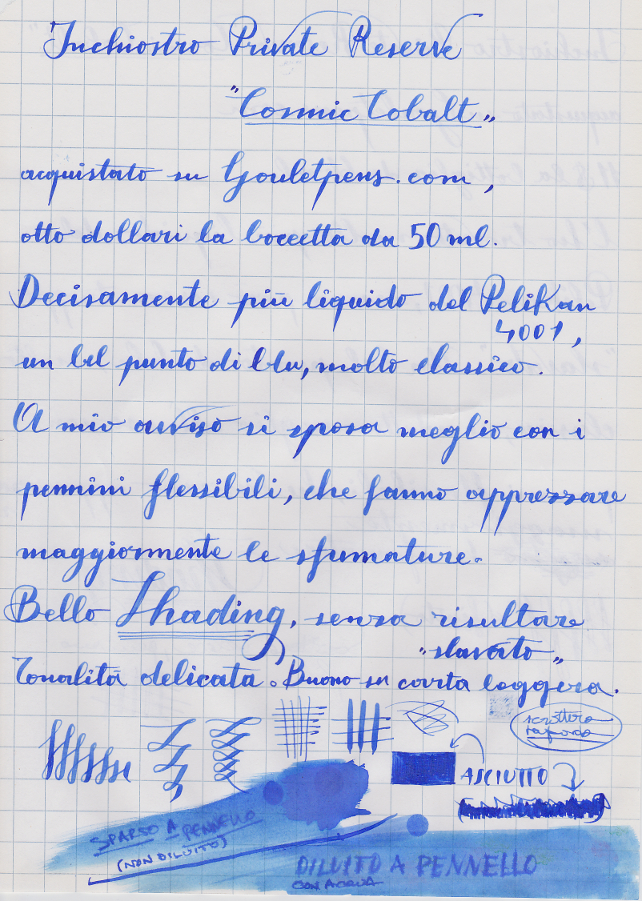 Inchiostro Private Reserve
"Cosmic Cobalt"
acquistato su Gouletpens.com,
otto dollari la boccetta da 50 ml.
Decisamente più liquido del Pelikan
4001,
un bel punto di blu, molto classico.
A mio avviso si sposa meglio con i
pennini flessibili, che fanno apprezzare
maggiormente le sfumature.
Bello Shading, senza risultare
"slavato"
Tonalità delicata. Buono su carta leggera.
scrittura
rapida
ASCIUTTO
SPARSO A PENNELLO
(NON DILUITO)
DILUITO A PENNELLO
CON ACQUA